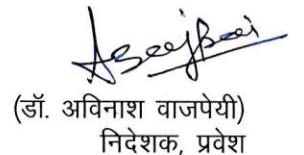 (डॉ. अविनाश वाजपेयी)
निदेशक, प्रवेश